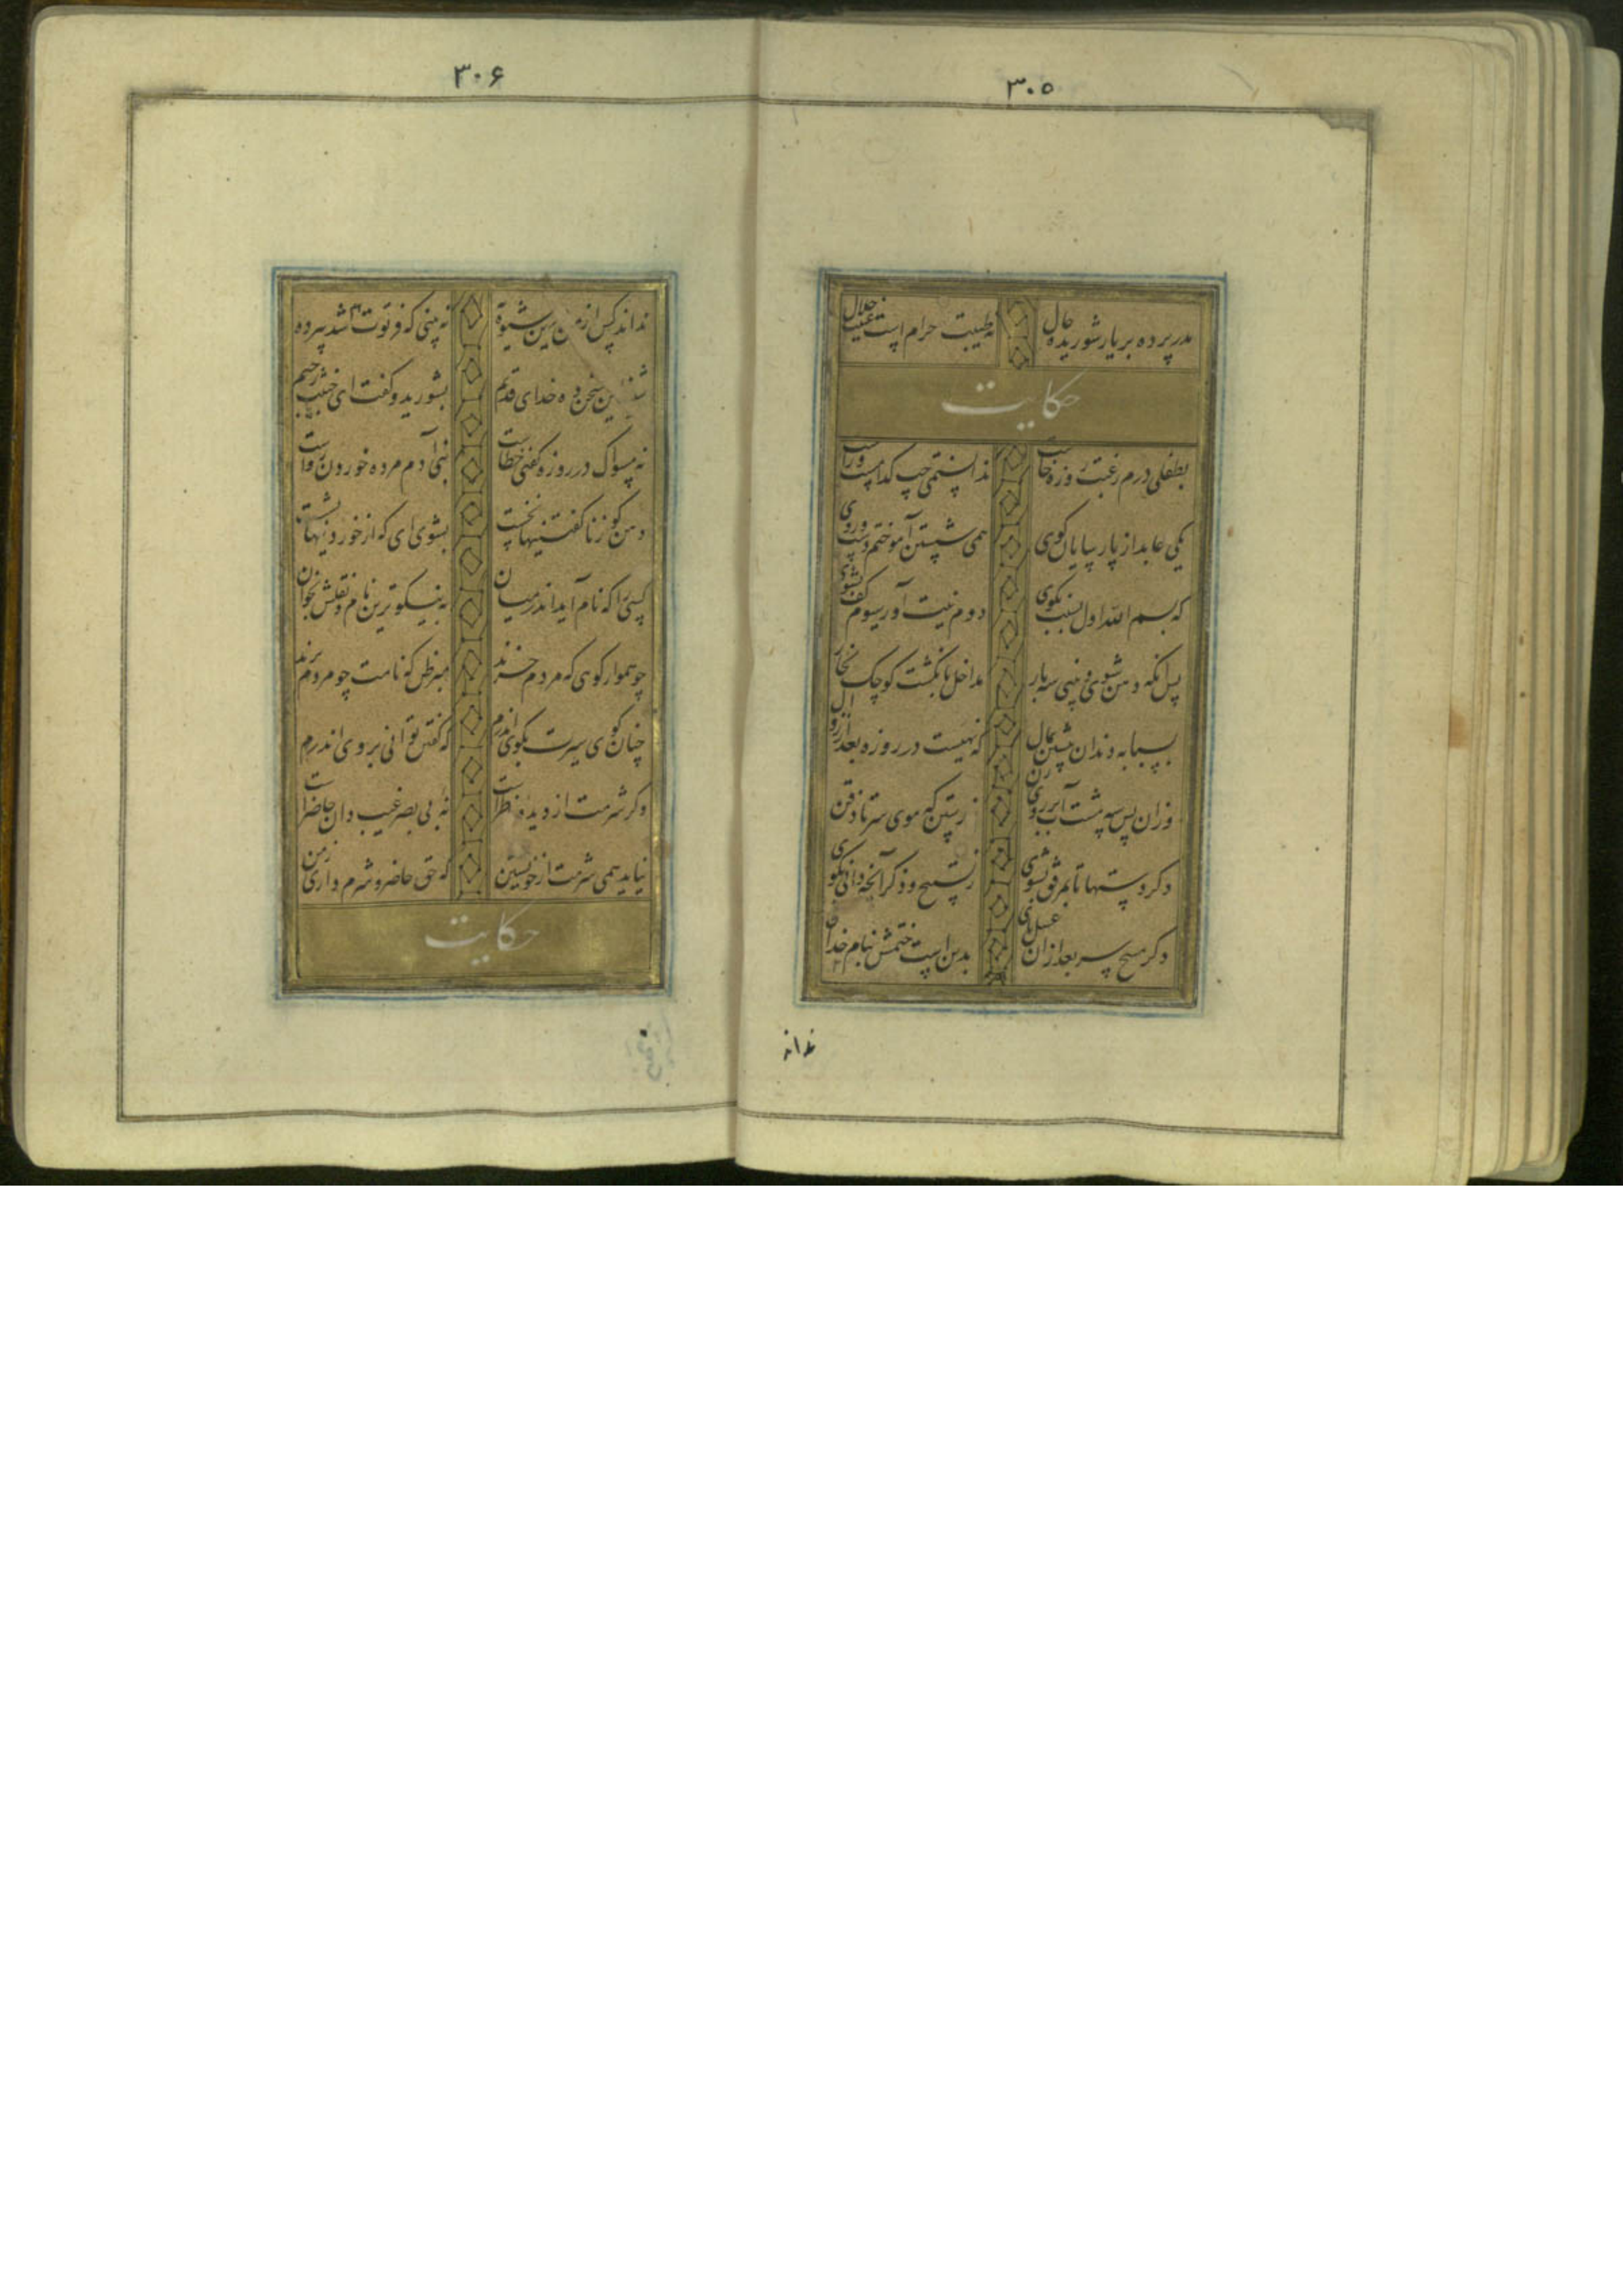 ۳۰۵
مدر پرده بر یار شوریده حال نه طیبت حرام است غیبت حلال
حکایت
بطفلی درم رغبت روزه خاست ندانستمی چپ کدامست و راست
یکی عابد از پارسایان کوی همی شستن آموختم دست و روی
که بسم الله اول بسنت بگوی دوم نیت آور سیوم کف بشوی
پس آنکه دهن شوی و بینی سه بار مداخل بانکشت کوچک بخار
بسبابه دندان پیشین بمال که نهیست در روزه بعد از زوال
وزان پس سه مشت آب بر روی زن ز رستن که موی سر تا ذقن
دکر دستها تا بمرفق بشوی ز تسبیح و ذکر آنچه دانی بکوی
دکر مسح سر بعد ازان غسل پای بدین است ختمش بنام خدای
نداند
۳۰۶
نداند کس از من بین شیوه نه بینی که فرتوت شد پیر ده
این سخن ده خدای قدیم بشورید و کفت ای خبیث رجیم
نه مسواک در روزه کفتی خطاست بنی آدم مرده خوردن رواست
دهن کو ز ناکفتنیها نخست بشوی ای که از خوردنیها بشست
کسی را که نام آید اندر میان به نیکوترین نام و نعتش بخوان
چو هموار کوی که مردم خرند مبر ظن که نامت چو مردم برند
چنان کوی سیرت بکوی اندرم که کفتن توانی بروی اندرم
وکر شرمت از دیده ناظر است نه بی بصر غیب دان حاضر است
نیاید همی شرمت از خویشتن که حق حاضر و شرم داری ز من
حکایت